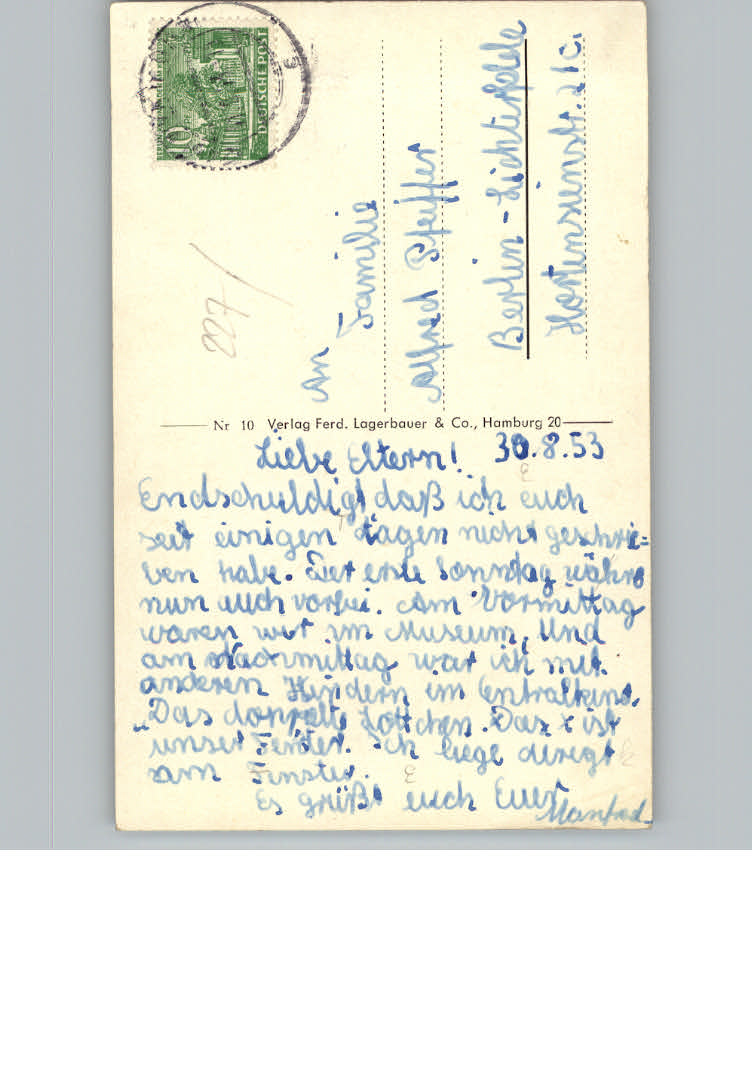 10
DEUTSCHE POST
227/
An
Familie
Alfred Pfeiffer
Berlin-Lichterfelde
Hortensienstr. 21c.
Nr 10 Verlag Ferd. Lagerbauer & Co., Hamburg 20
Liebe Eltern! 30.8.53
Endschuldigt, daß ich euch
seit einigen tagen nicht geschrie=
ben habe. Der erste Sonntag währe
nun auch vorbei. Am Vormittag
waren wir im Museum. Und
am Nachmittag war ich mit
anderen Kindern im Centralkino.
„Das doppelte Lottchen. Das x ist
unser Fenster. Ich liege diregt
am Fenster.
Es grüßt euch Euer
Manfred